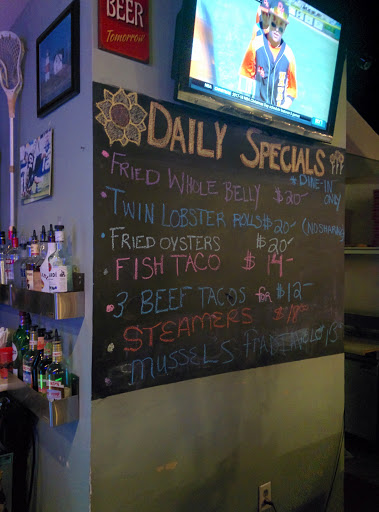 BEER
Tomorrow
DAILY SPECIALS
* DINE-IN ONLY
FRIED WHOLE BELLY $20-
TWIN LOBSTER ROLLS $20- (NO SHARING)
FRIED OYSTERS $20-
FISH TACO $14-
3 BEEF TACOS for $12-
STEAMERS
MUSSELS FRA DIAVLO 15-